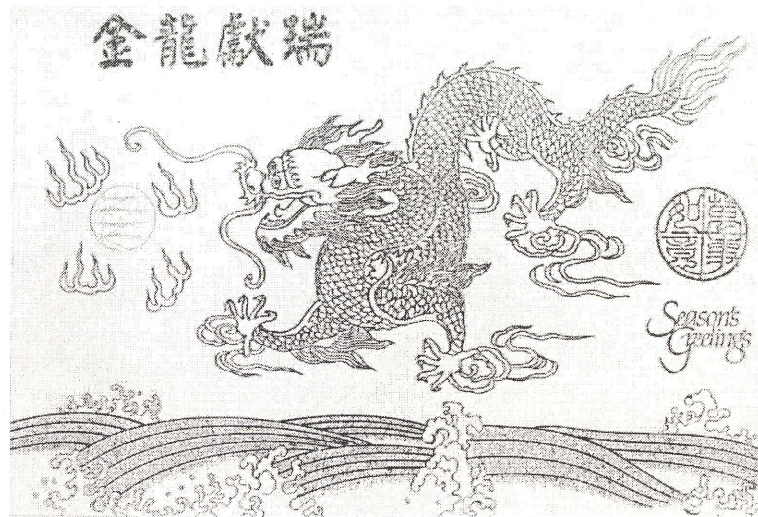 金龍獻瑞
萬事如意
Season's
Greetings